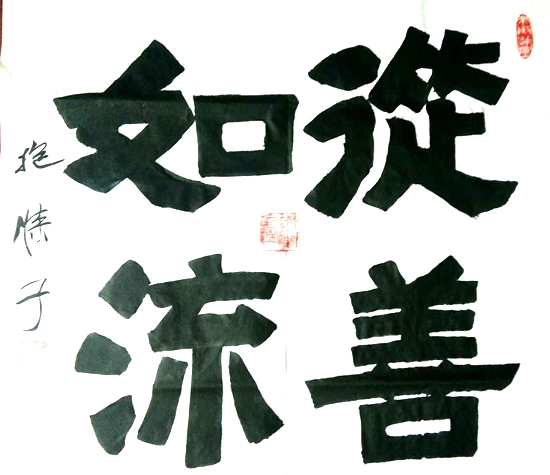 從善
如流
抱情子